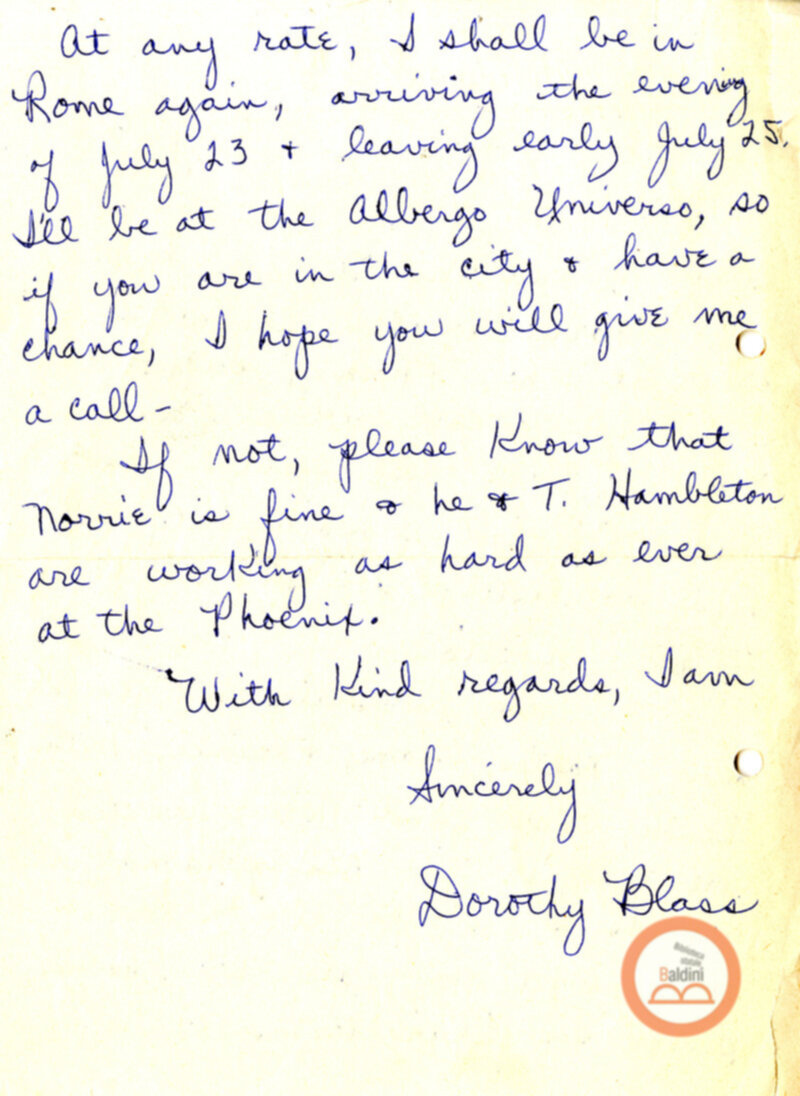 At any rate, I shall be in
Rome again, arriving the evening
of July 23 + leaving early July 25.
I'll be at the Albergo Universo, so
if you are in the city & have a
chance, I hope you will give me
a call -
If not, please know that
Norrie is fine & he & T. Hambleton
are working as hard as ever
at the Phoenix.
With kind regards, I am
Sincerely
Dorothy Blass
Biblioteca
statale
Baldini